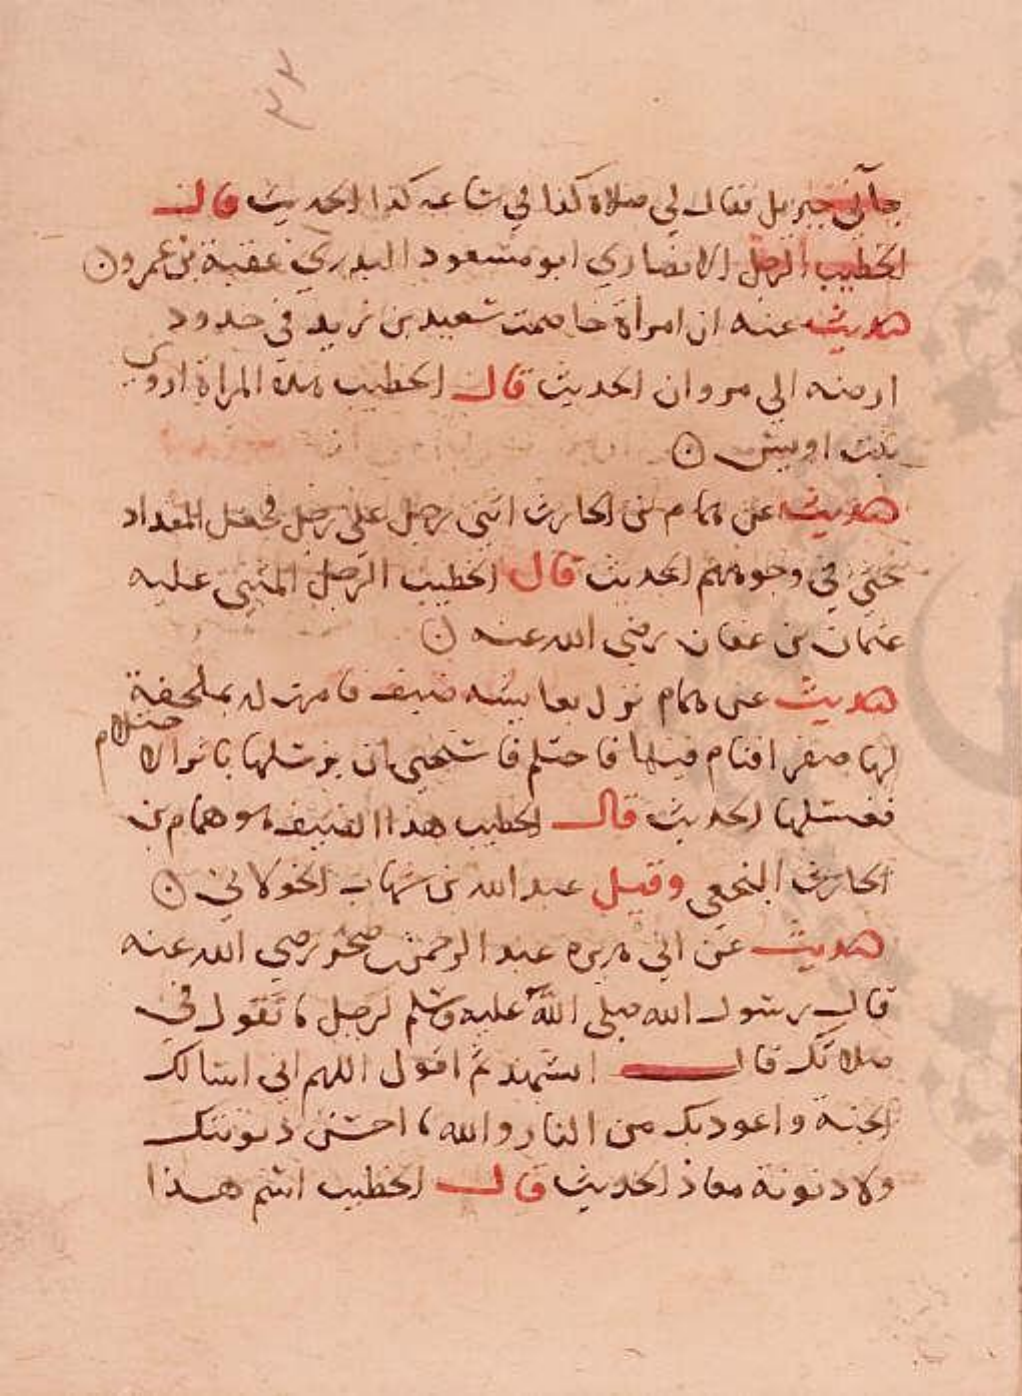 ٢٢
جآني جبريل فقال لي صلاة كذا في ساعة كذا الحديث قال
الخطيب الرجل الانصاري ابو مسعود البدري عقبة بن عمرو
حديث عنه ان امراة خاصمت سعيد بن زيد في حدود
ارضه الي مروان الحديث قال الخطيب هذه المراة اروى
بنت اويس
حديث عن همام بن الحارث اثنى رجل على رجل فجعل المقداد
يحثي في وجوههم الحديث قال الخطيب الرجل المثني عليه
عثمان بن عفان رضي الله عنه
حديث عن همام نزل بعايشه ضيف فامرت له بملحفة
لها صفرا فنام فيها فاحتلم فاستحيى ان يرسلها بها اثر الاحتلام
فغسلها الحديث قال الخطيب هذا الضيف هو همام بن
الحارث النخعي وقيل عبد الله بن شهاب الخولاني
حديث عن ابي هريره عبد الرحمن بن صخر رضي الله عنه
قال رسول الله صلى الله عليه وسلم لرجل ما تقول في
صلاتك قال اتشهد ثم اقول اللهم اني اسالك
الجنة واعوذ بك من النار والله ما احسن دندنتك
ولا دندنة معاذ الحديث قال الخطيب اسم هذا